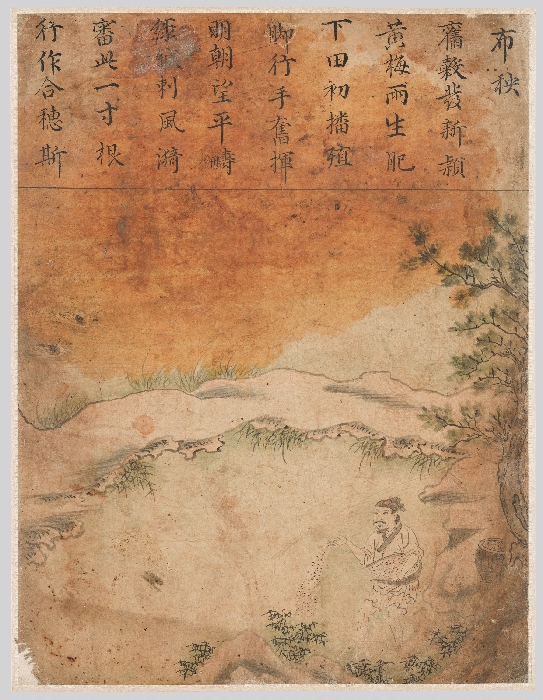 布秧
舊穀發新穎
黃梅雨生肥
下田初播殖
脚行手奮揮
明朝望平疇
綠針刺風漪
審此一寸根
行作合穗斯